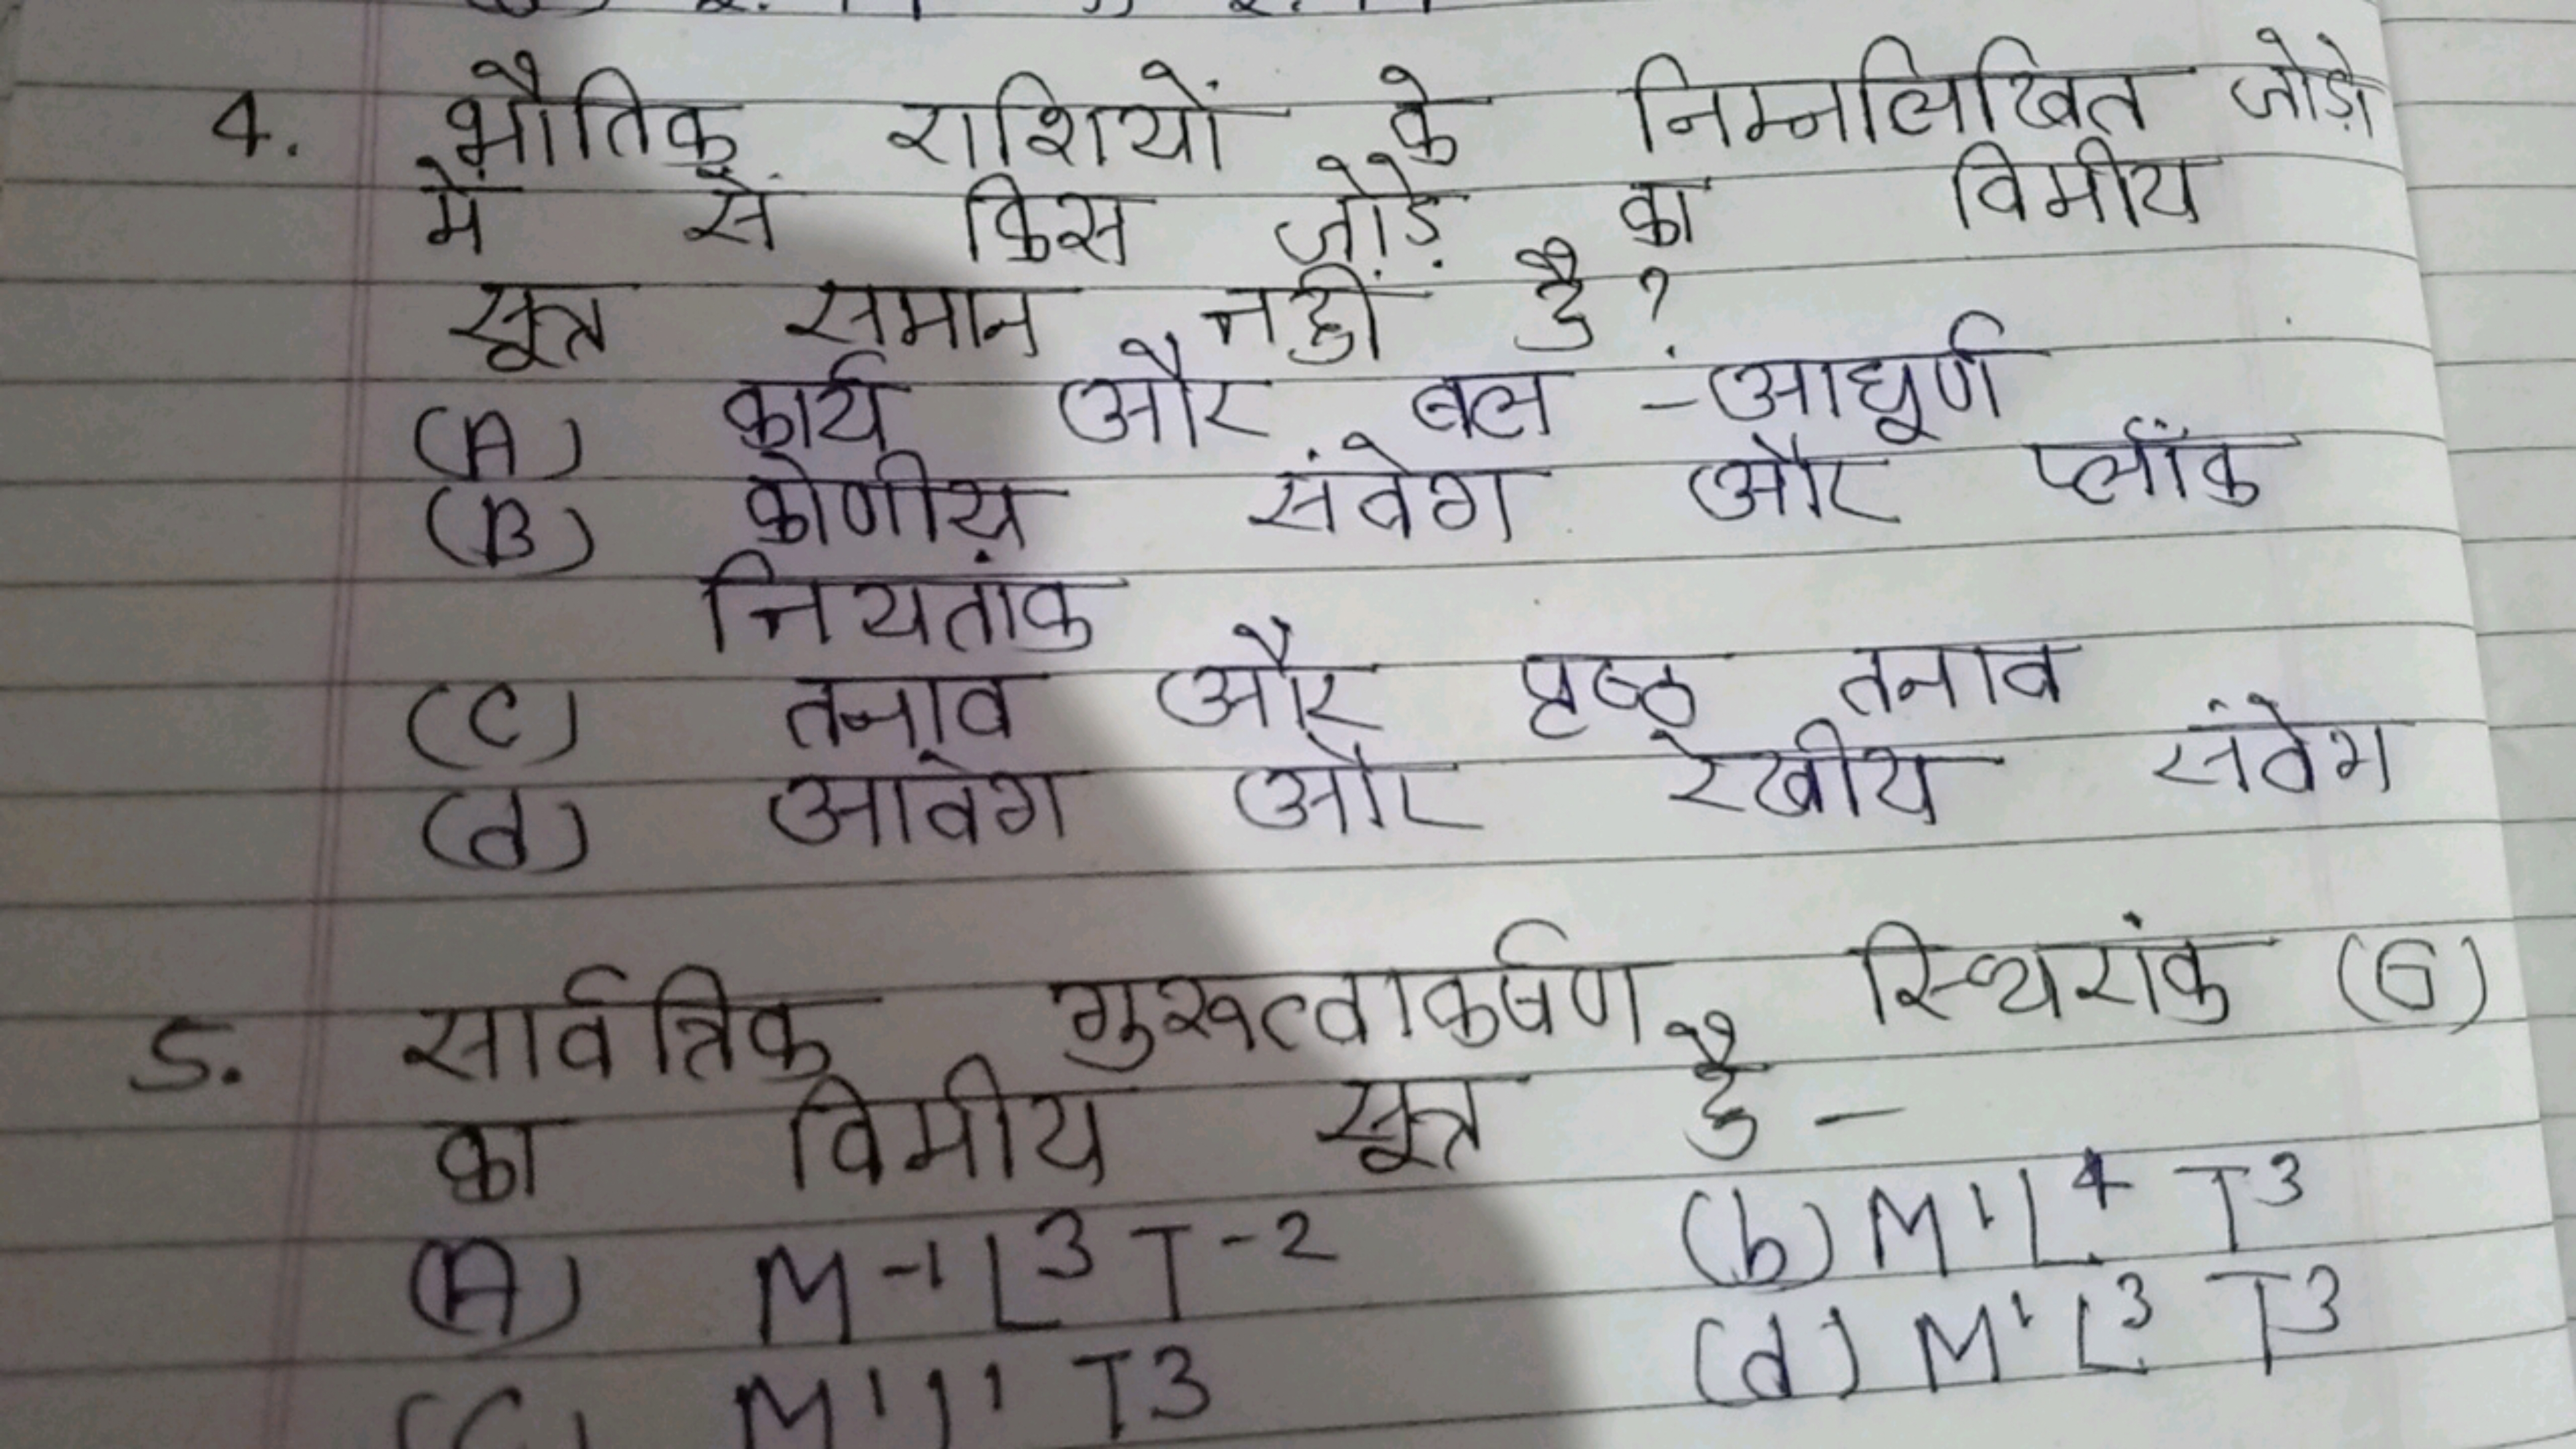 4. भौतिक राशियों के निम्नलिखित जोड़ो
में से किस जोड़े का विमीय
सूत्र समान नहीं है?
(A) कार्य और बल -आघूर्ण
(B) कोणीय संवेग और प्लांक
नियतांक
(C) तनाव और पृष्ठ तनाव
(d) आवेग और रेखीय संवेग
5. सार्वत्रिक गुरुत्वाकर्षण स्थिरांक (G)
का विमीय सूत्र है -
(A) M⁻¹L³T⁻² (b) M¹L⁴ T³
(C) M¹L¹ T3 (d) M¹L³ T³